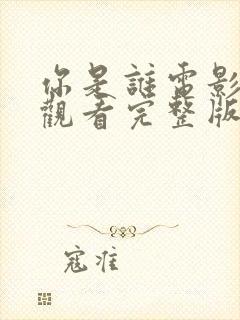 你是誰電影
觀看完整版
寇准